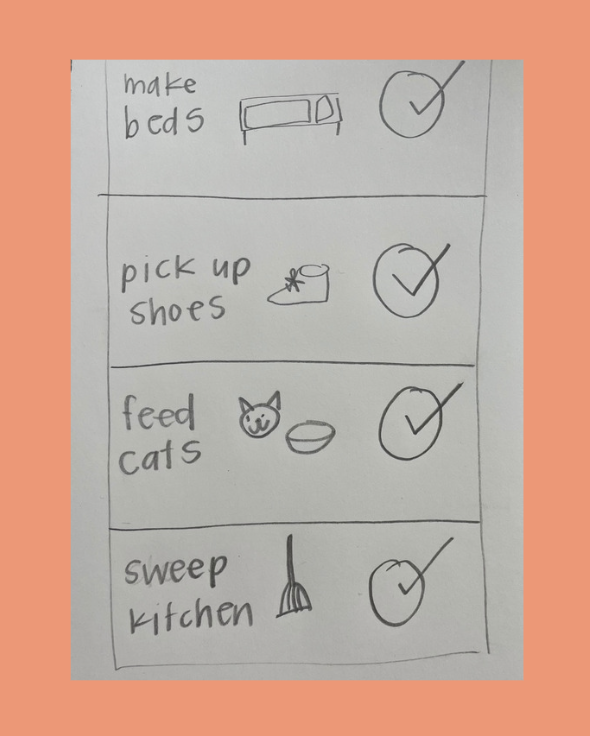 make
beds
pick up
shoes
feed
cats
sweep
kitchen